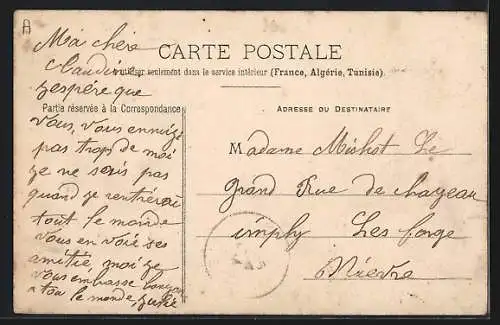 A
Ma chère
Claudine
CARTE POSTALE
A utiliser seulement dans le service intérieur (France, Algérie, Tunisie).
j'espère que
Partie réservée à la Correspondance
ADRESSE DU DESTINATAIRE
vous, vous ennuyé
pas trop de moi
je ne sais pas
quand je rentrerai
tout le monde
vous en voie ses
amitié, moi je
vous embrasse
a tou le monde,
Madame Michot Le
grand Rue de chazeau
imphy Les forge
Nievre